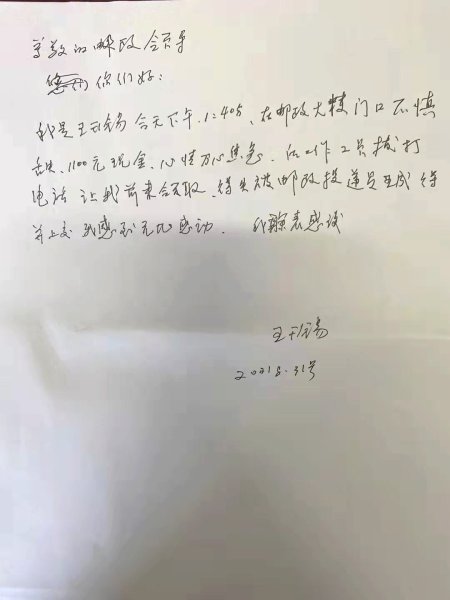 尊敬的邮政领导
您们你们好：
我是王 锡今天下午.1:40分、在邮政大楼门口不慎
丢失、1100元现金、心情万心焦急、 工作人员拨打
电话让我前来领取、得失被邮政投递员 得
并上交 我感到无比感动. 我 表感谢
王 锡
2021 8.31号